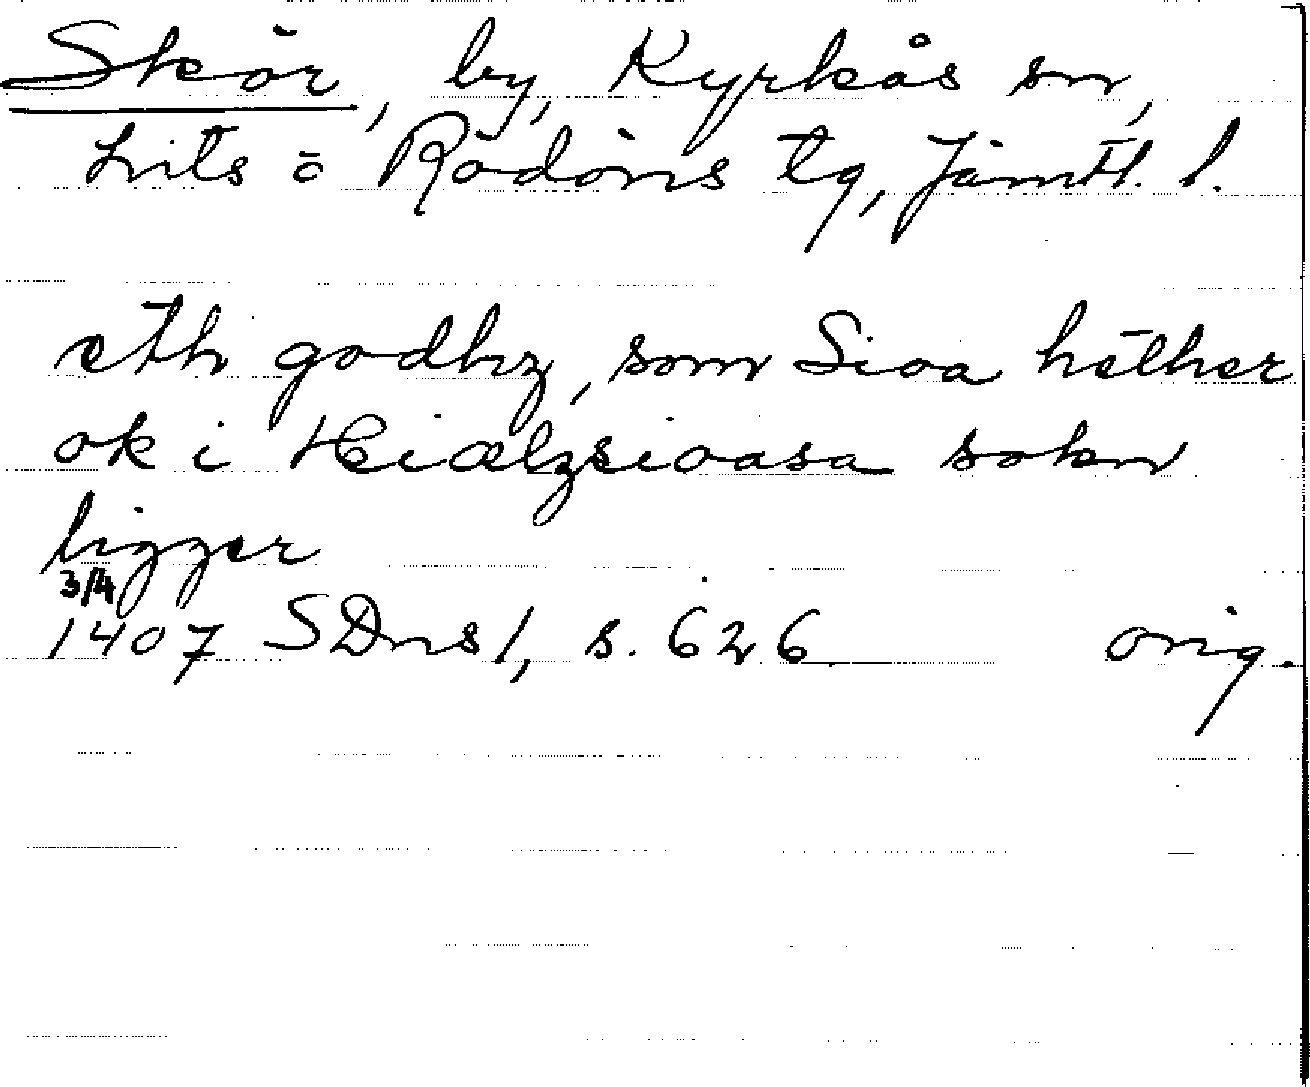 Skör, by, Kyrkås sn,
Lits o Rödöns tg, Jämtl. l.
eth godhz, som Sioa hether
ok i Hiælzsioasa sokn
ligger
3/4
1407 SDns 1, s. 626 orig.